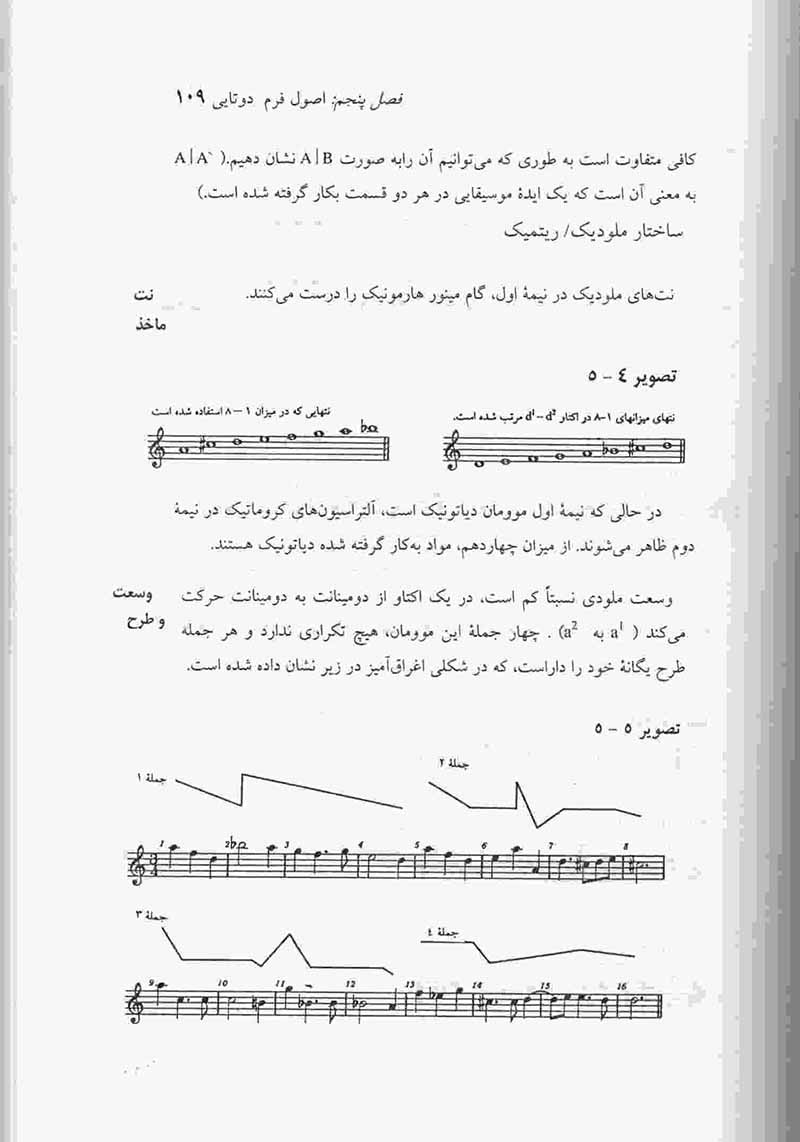 فصل پنجم: اصول فرم دوتایی ۱۰۹
کافی متفاوت است به طوری که می‌توانیم آن رابه صورت A|B نشان دهیم.( A|A`
به معنی آن است که یک ایدهٔ موسیقایی در هر دو قسمت بکار گرفته شده است.)
ساختار ملودیک/ ریتمیک
نت‌های ملودیک در نیمهٔ اول، گام مینور هارمونیک را درست می‌کنند.
نت
ماخذ
تصویر ۴ – ۵
نتهای میزانهای ۱-۸ در اکتار d¹ – d² مرتب شده است.
نتهایی که در میزان ۱ – ۸ استفاده شده است
در حالی که نیمهٔ اول موومان دیاتونیک است، آلتراسیون‌های کروماتیک در نیمهٔ
دوم ظاهر می‌شوند. از میزان چهاردهم، مواد به‌کار گرفته شده دیاتونیک هستند.
وسعت ملودی نسبتاً کم است، در یک اکتاو از دومینانت به دومینانت حرکت
می‌کند ( a¹ به a²) . چهار جملهٔ این موومان، هیچ تکراری ندارد و هر جمله
طرح یگانهٔ خود را داراست، که در شکلی اغراق‌آمیز در زیر نشان داده شده است.
وسعت
و طرح
تصویر ۵ – ۵
جملهٔ ۲
جملهٔ ۱
1 2 3 4 5 6 7 8
جملهٔ ۳
جملهٔ ۴
9 10 11 12 13 14 15 16